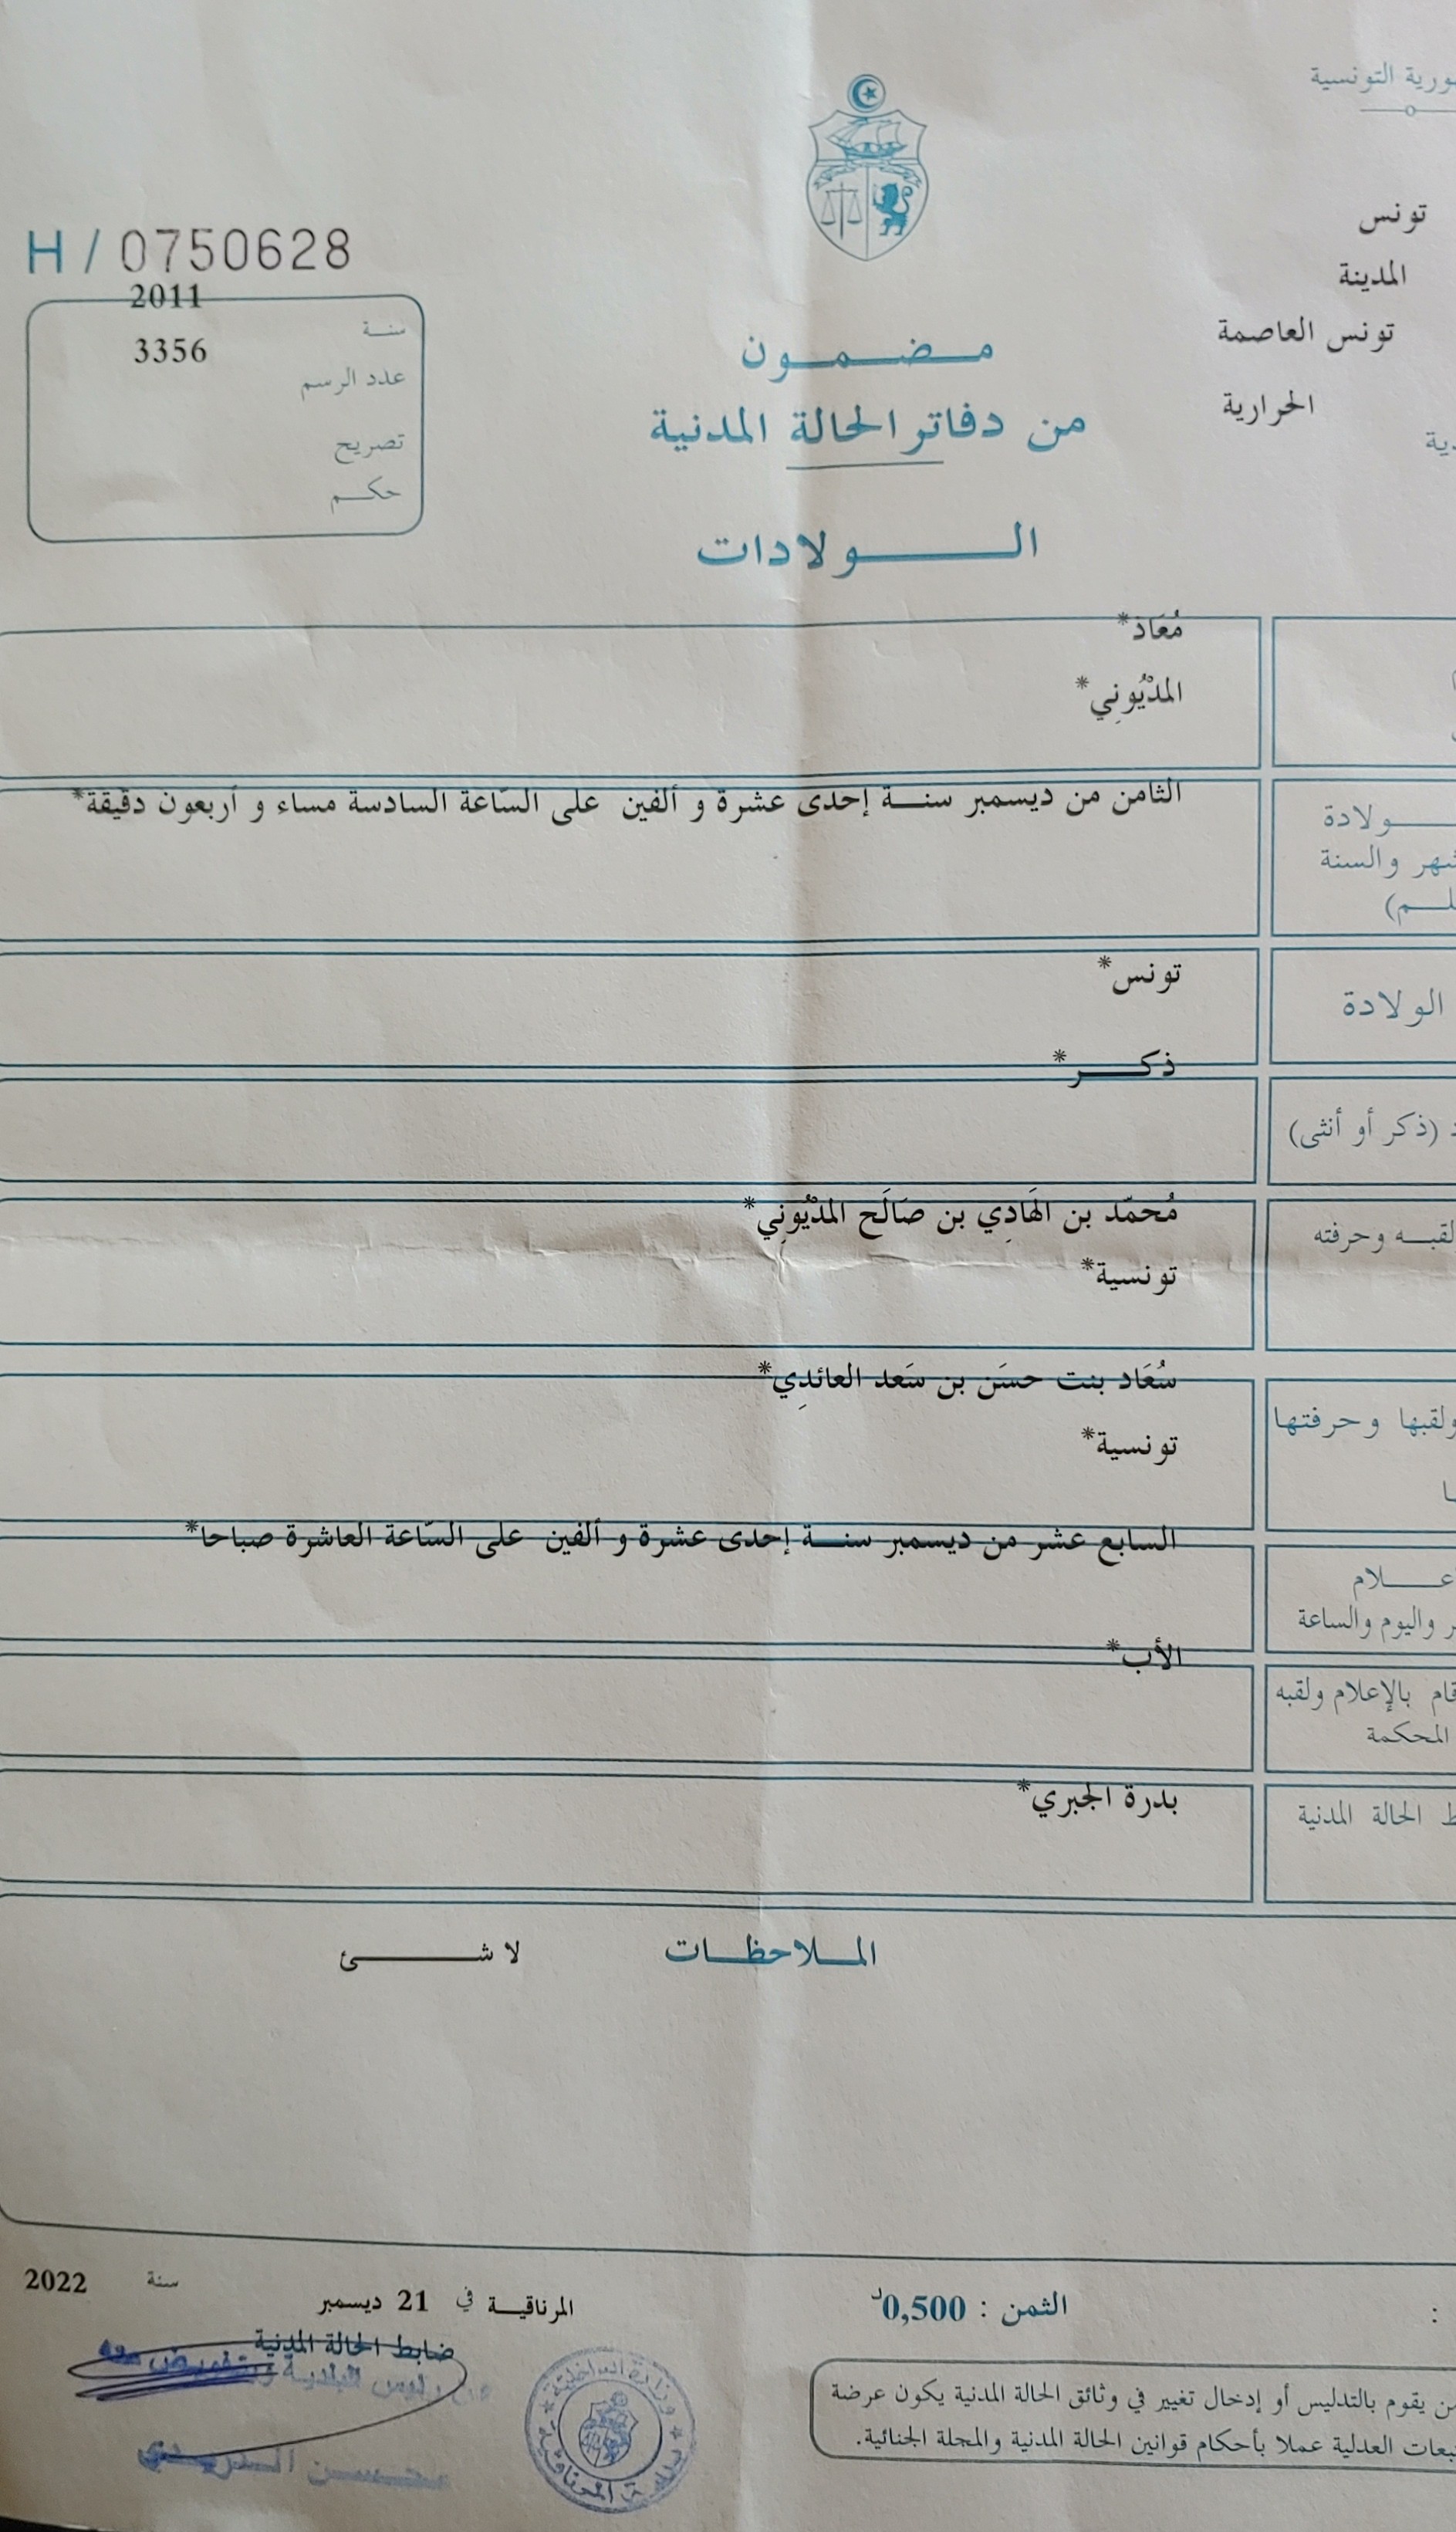 التونسية
تونس
المدينة
تونس العاصمة
الحرارية
H / 0750628
2011
سنة
3356
عدد الرسم
تصريح
حكم
مضمون
من دفاتر الحالة المدنية
الولادات
مُعَاذ*
المدْيُونِي*
الثامن من ديسمبر سنة إحدى عشرة و ألفين على السّاعة السادسة مساء و أربعون دقيقة*
ولادة
والسنة
تونس*
الولادة
ذكر*
(ذكر أو أنثى)
مُحمّد بن الهَادِي بن صَالَح المدْيُونِي*
وحرفته
تونسية*
سُعَاد بنت حسَن بن سَعد العائدِي*
ولقبها وحرفتها
تونسية*
السابع عشر من ديسمبر سنة إحدى عشرة و ألفين على السّاعة العاشرة صباحا*
واليوم والساعة
الأب*
بالإعلام ولقبه
المحكمة
بدرة الجبري*
الحالة المدنية
الملاحظات
لا شئ
المرناقية في 21 ديسمبر سنة 2022
الثمن : 0,500د
ضابط الحالة المدنية
رئيس البلدية
يقوم بالتدليس أو إدخال تغيير في وثائق الحالة المدنية يكون عرضة
العدلية عملا بأحكام قوانين الحالة المدنية والمجلة الجنائية.